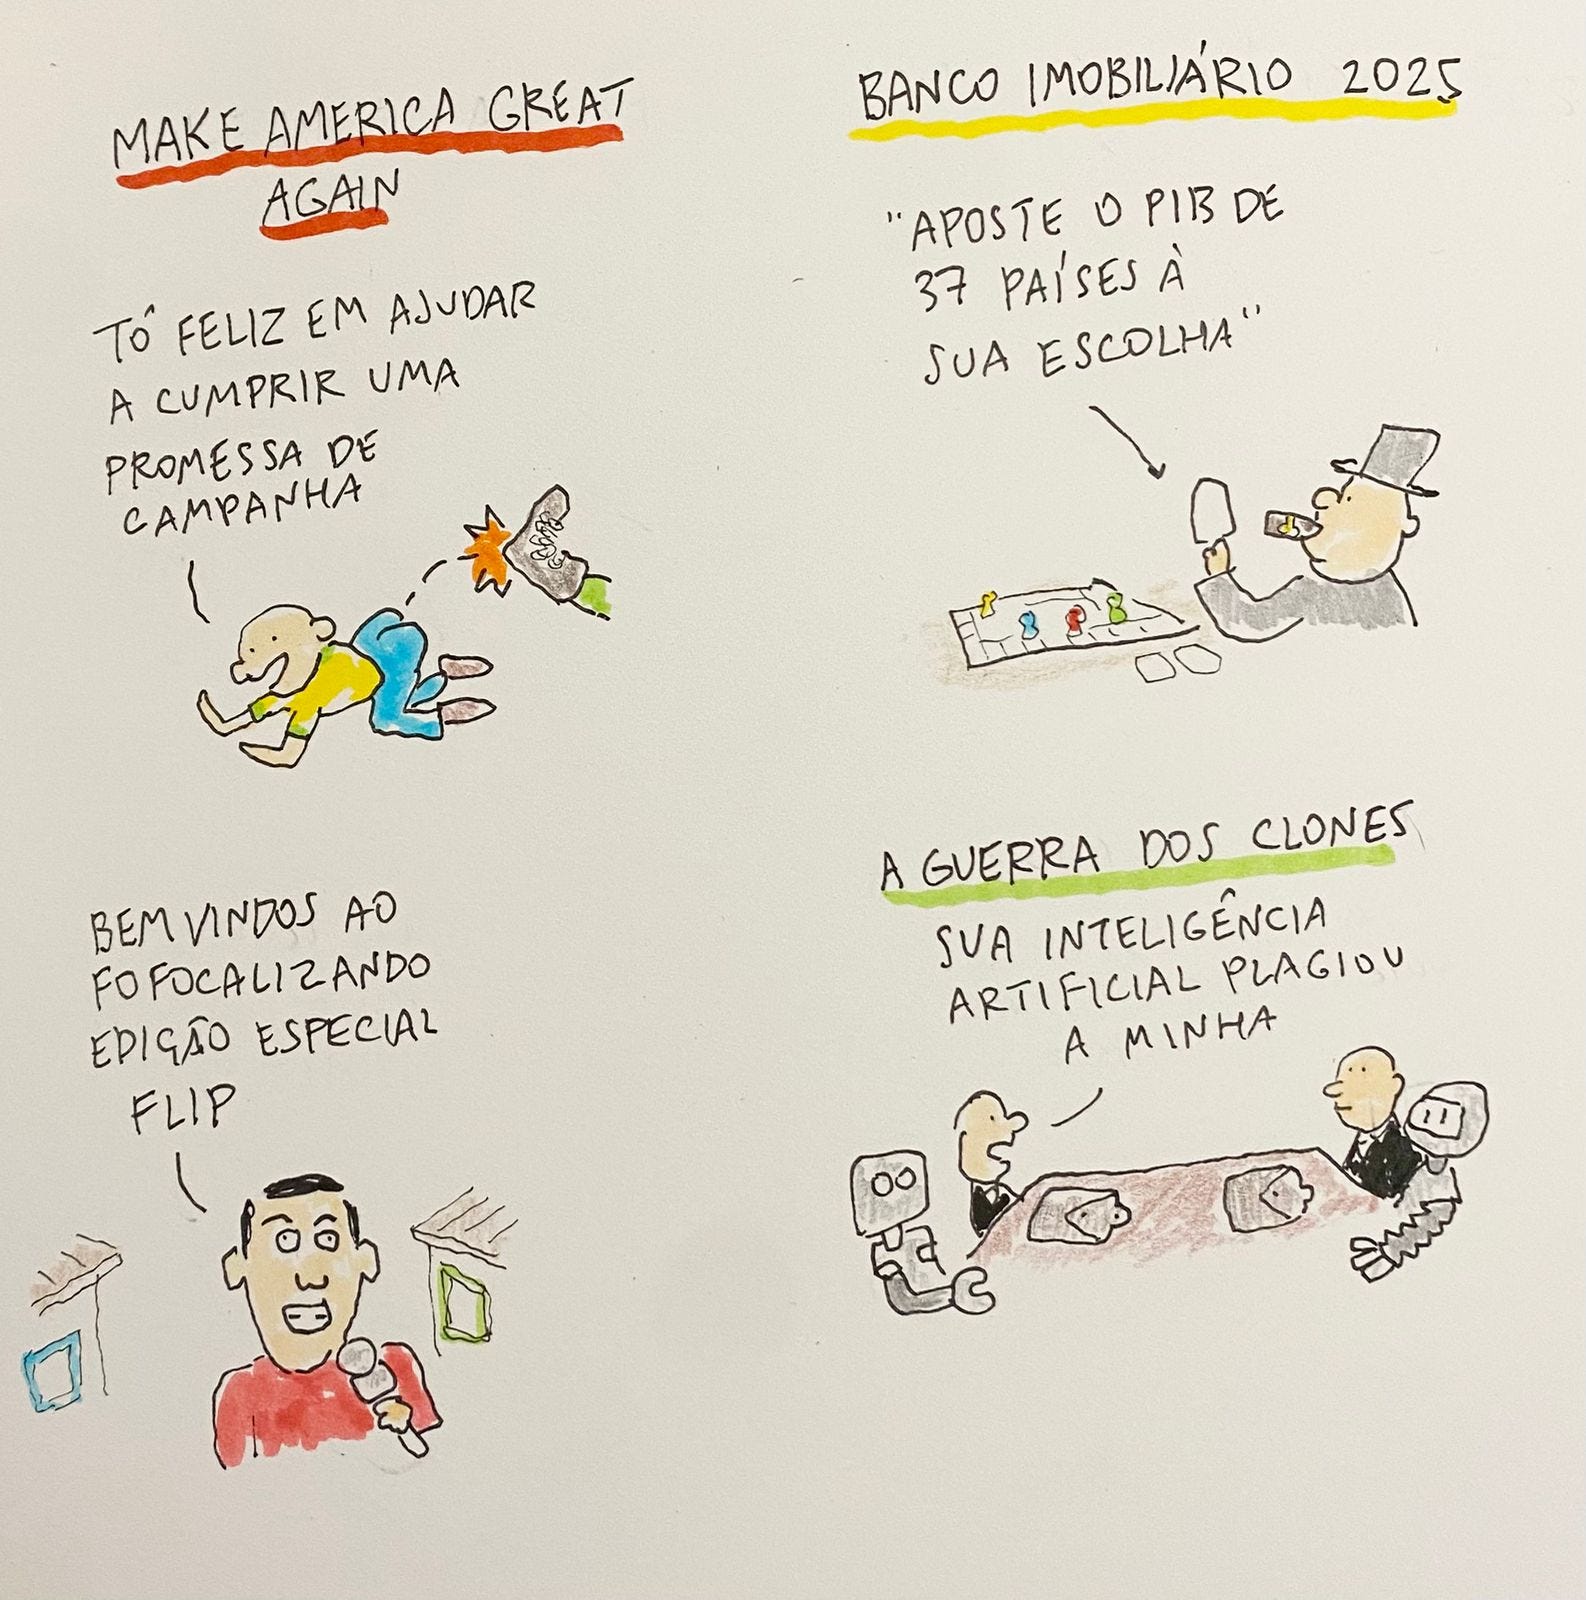 MAKE AMERICA GREAT
AGAIN
TÔ FELIZ EM AJUDAR
A CUMPRIR UMA
PROMESSA DE
CAMPANHA
BANCO IMOBILIÁRIO 2025
"APOSTE O PIB DE
37 PAÍSES À
SUA ESCOLHA"
BEM VINDOS AO
FOFOCALIZANDO
EDIÇÃO ESPECIAL
FLIP
A GUERRA DOS CLONES
SUA INTELIGÊNCIA
ARTIFICIAL PLAGIOU
A MINHA